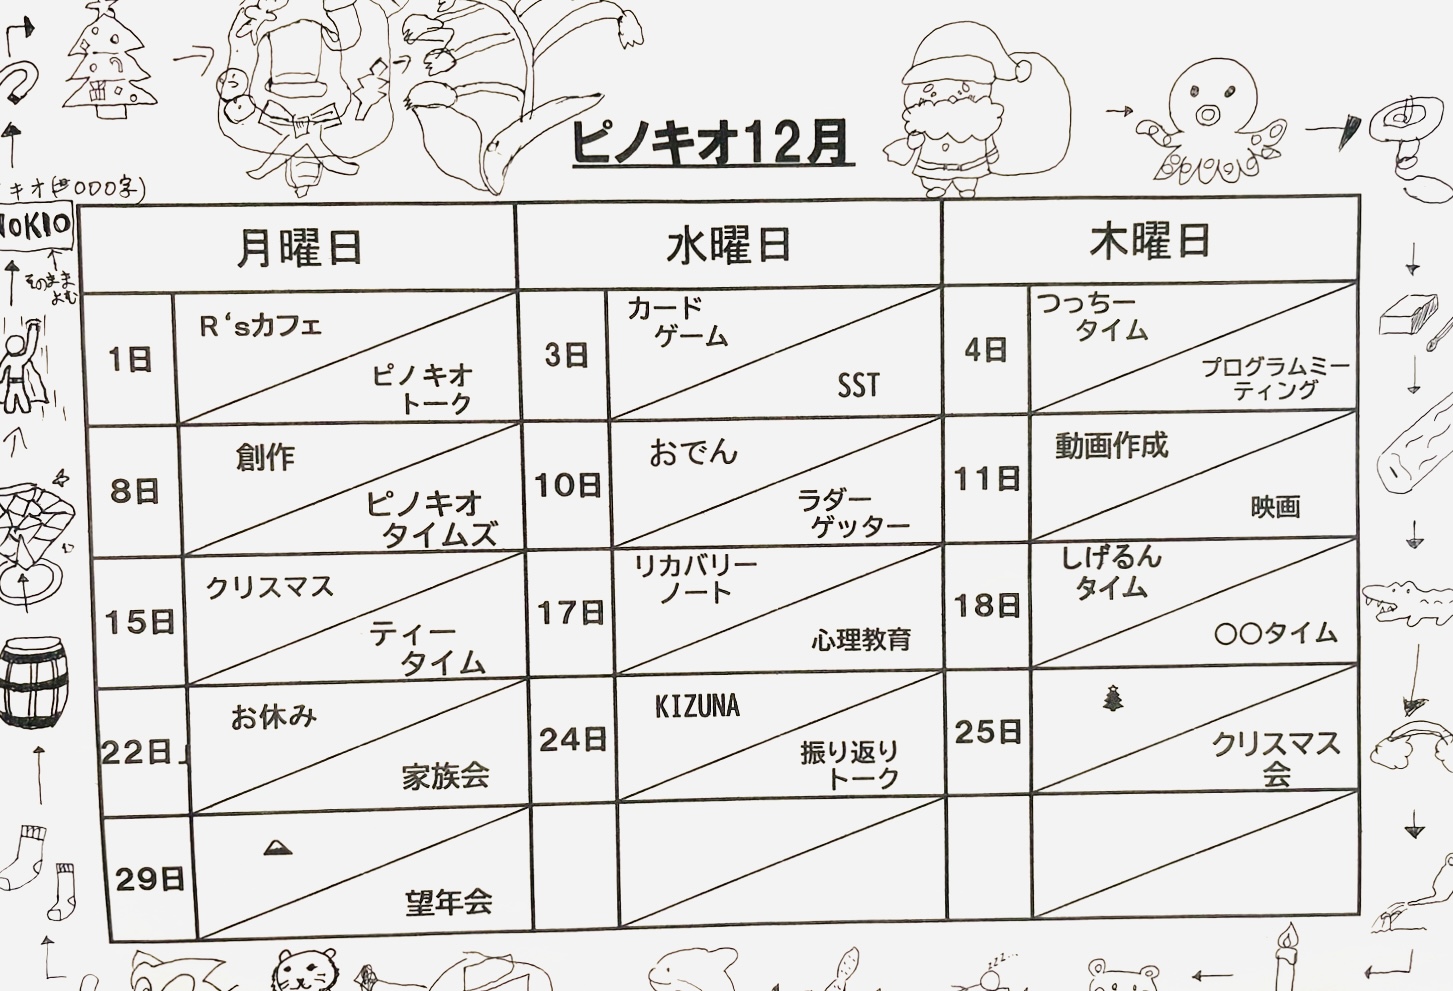 ピノキオ12月
キオ(世000字)
NOKIO
そのまま
よむ
月曜日 水曜日 木曜日
1日
R‘sカフェ
ピノキオ
トーク
3日
カード
ゲーム
SST
4日
つっちー
タイム
プログラムミー
ティング
8日
創作
ピノキオ
タイムズ
10日
おでん
ラダー
ゲッター
11日
動画作成
映画
15日
クリスマス
ティー
タイム
17日
リカバリー
ノート
心理教育
18日
しげるん
タイム
○○タイム
22日
お休み
家族会
24日
KIZUNA
振り返り
トーク
25日
クリスマス
会
29日
望年会
zzz...